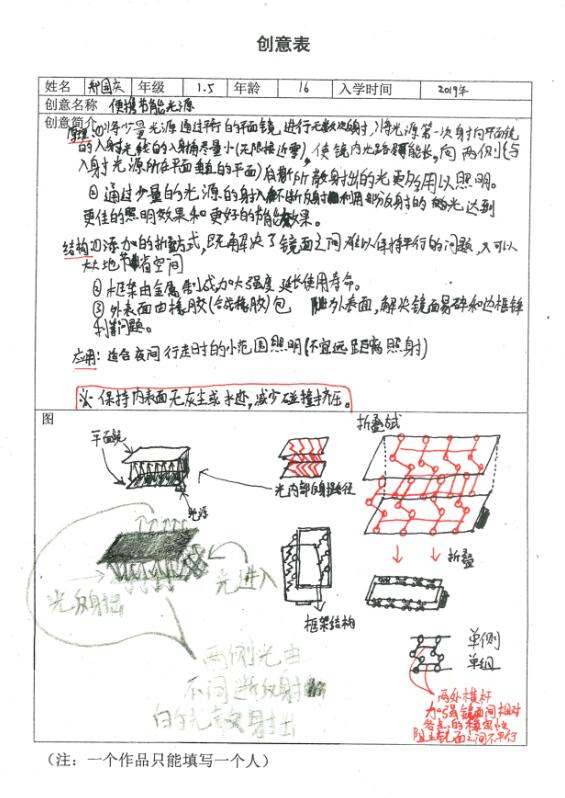 创意表
姓名 年级 1.5 年龄 16 入学时间 2019年
创意名称 便携节能光源
创意简介
原理:①将少量光源通过平行的平面镜进行无数次反射,将光源第一次射向平面镜
的入射光线的入射角尽量小(无限接近零),使镜内光路尽可能长,向两侧(与
入射光源所在平面垂直的平面)后 所散射出的光更够用以照明。
②通过少量的光源的射入不断反射 利用部分反射的 光达到
更佳的照明效果和更好的节能效果。
结构:①添加的折叠方式,既解决了镜面之间难以保持平行的问题,又可以
大大地节省空间
②框架由金属制成加大强度延长使用寿命。
③外表面由橡胶(合成橡胶)包 外表面,解决镜面易碎和边框锋
利等问题。
应用:适合夜间行走时的小范围照明(不宜远距离照射)
注:保持内表面无灰尘或水迹,减少碰撞挤压。
图
折叠方式
平面镜
光内部反射路径
光源
折叠
光进入
光反射出
框架结构
单侧
单组
两侧光由
不同 反射
白 光 射出
两外横杆
加强镜面间相对
各点的稳定性
阻止镜面之间不平行
(注:一个作品只能填写一个人)